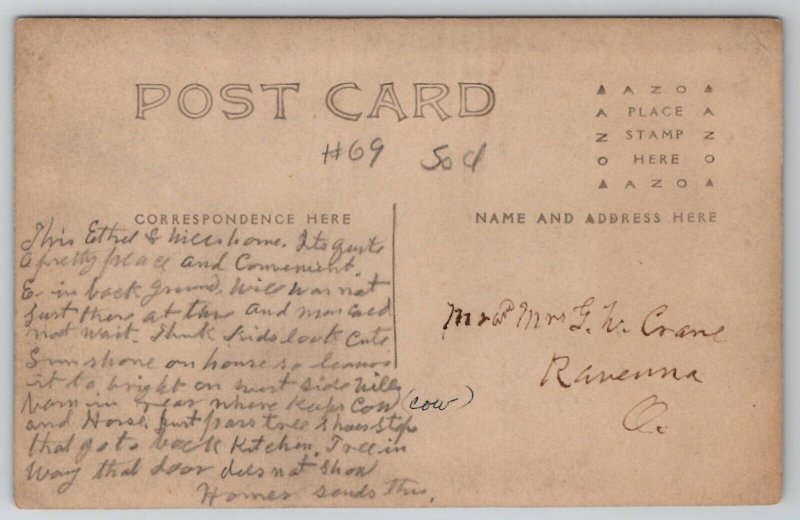 POST CARD
#69
50¢
▲ A Z O ▲
A PLACE A
Z STAMP Z
O HERE O
▲ A Z O ▲
CORRESPONDENCE HERE
NAME AND ADDRESS HERE
This Ethel & Wills home. Its quite
a pretty place and Convenient.
E in back ground, Will was not
just there at time and man could
not wait. Think Kids look Cute
Sun shone on house so leaves
it to bright on west side Wills
barn in rear where keeps Cow (cow)
and Horse, just pass tree shows step
that go to back Kitchen. Tree in
way that door does not show
Homer sends this.
Mr and Mrs G. W. Crane
Ravenna
O.